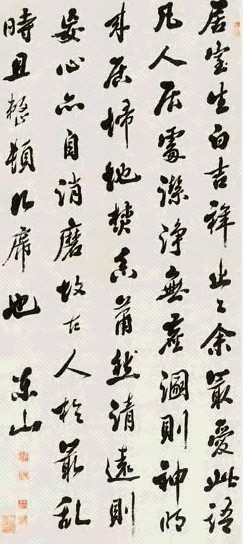 虛室生白吉祥止止余最爱此語
凡人居處潔淨無塵溷則神明
来居掃地焚香蕭然清遠則
妄心亦自消磨故古人於最乱
時且整頓几席也 东山